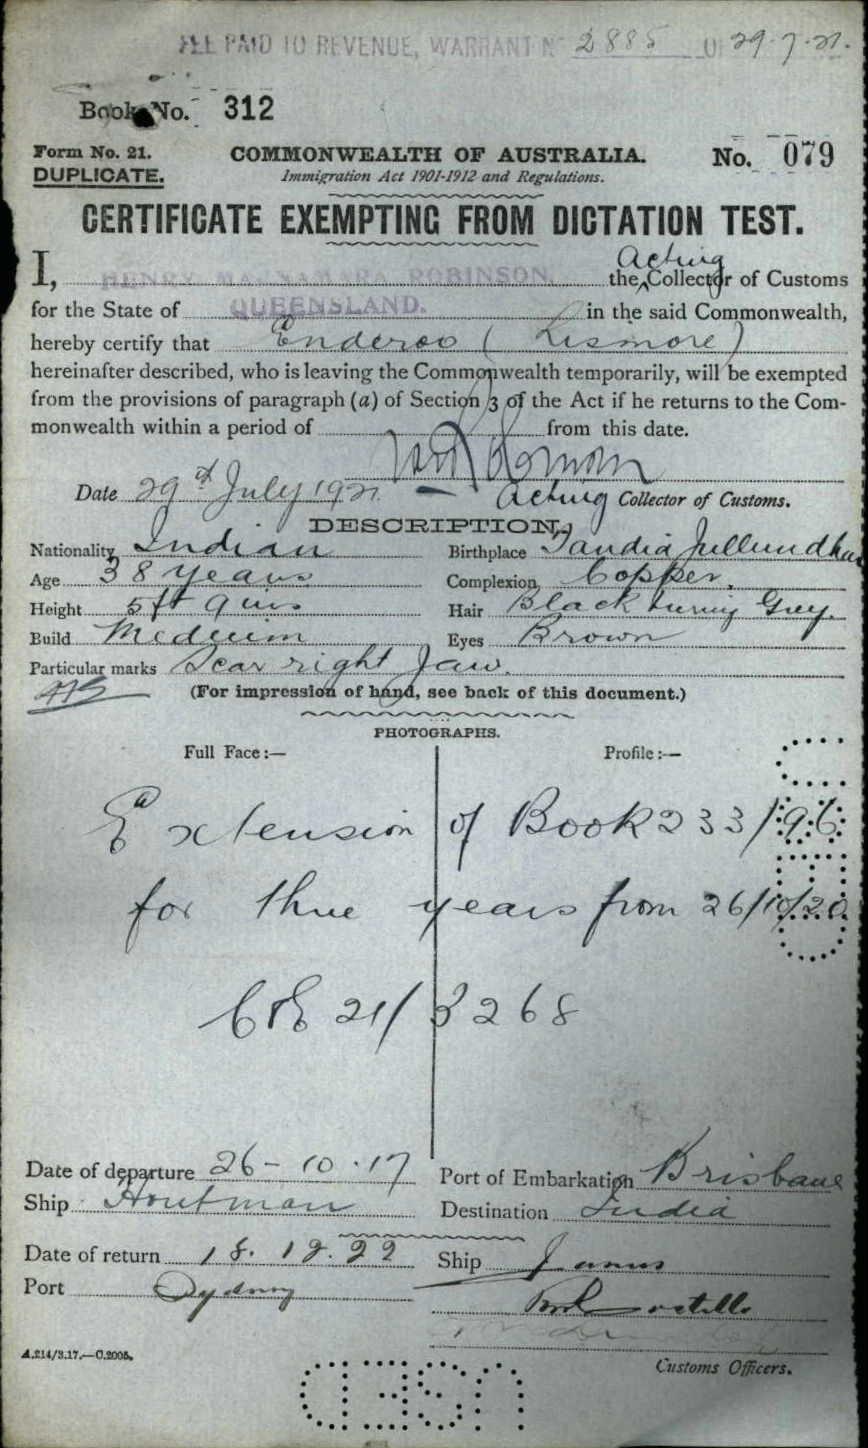 FEE PAID TO REVENUE, WARRANT No 2885 OF 29.7.21.
Book No. 312
Form No. 21. COMMONWEALTH OF AUSTRALIA. No. 079
DUPLICATE. Immigration Act 1901-1912 and Regulations.
CERTIFICATE EXEMPTING FROM DICTATION TEST.
Acting
I, HENRY MACNAMARA ROBINSON, the Collector of Customs
for the State of QUEENSLAND. in the said Commonwealth,
hereby certify that (Lismore)
hereinafter described, who is leaving the Commonwealth temporarily, will be exempted
from the provisions of paragraph (a) of Section 3 of the Act if he returns to the Com-
monwealth within a period of from this date.
Date 29th July 1921 Acting Collector of Customs.
DESCRIPTION.
Nationality Indian Birthplace Jullundhur
Age 38 years Complexion Copper.
Height 5ft 9ins Hair Black turning Grey.
Build Medium Eyes Brown
Particular marks Scar right Jaw.
(For impression of hand, see back of this document.)
PHOTOGRAPHS.
Full Face :— Profile :—
Extension of Book 233/96
for three years from 26/10/20
C&E 21/3268
Date of departure 26-10.17 Port of Embarkation Brisbane
Ship Houtman Destination India
Date of return 18.12.22 Ship Janus
Port Sydney
A.214/3.17.—C.2005.
Customs Officers.
USED